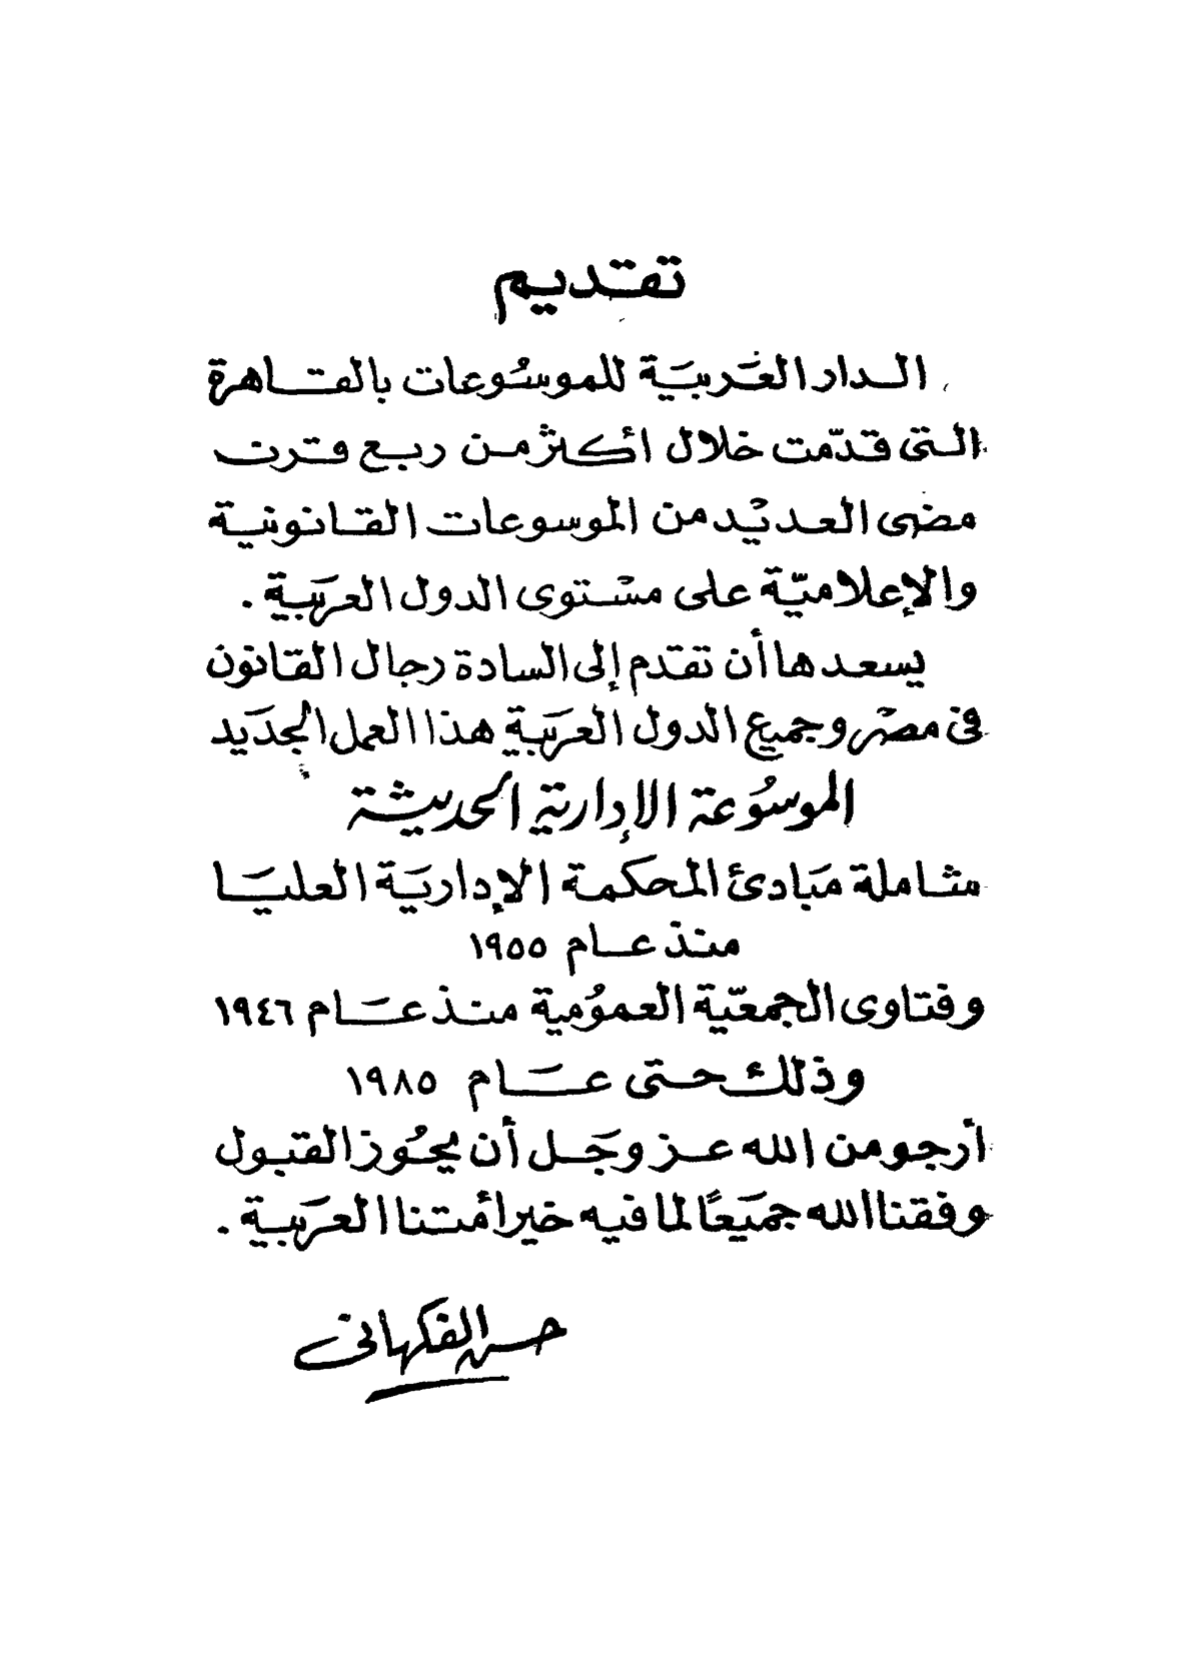 تقديم
الدار العربية للموسوعات بالقاهرة
التى قدّمت خلال أكثر من ربع قرن
مضى العديد من الموسوعات القانونية
والإعلاميّة على مستوى الدول العربية .
يسعدها أن تقدم إلى السادة رجال القانون
فى مصر وجميع الدول العربية هذا العمل الجديد
الموسُوعة الإدارية الحديثة
شاملة مَبادئ المحكمة الإداريَة العليَا
منذ عام ١٩٥٥
وفتاوى الجمعيّة العمومُية منذ عَام ١٩٤٦
وذلك حتى عَام ١٩٨٥
أرجو من الله عز وجَل أن يحُوز القبول
وفقنا الله جميَعًا لما فيه خير أمتنا العربية .
حسن الفكهانى